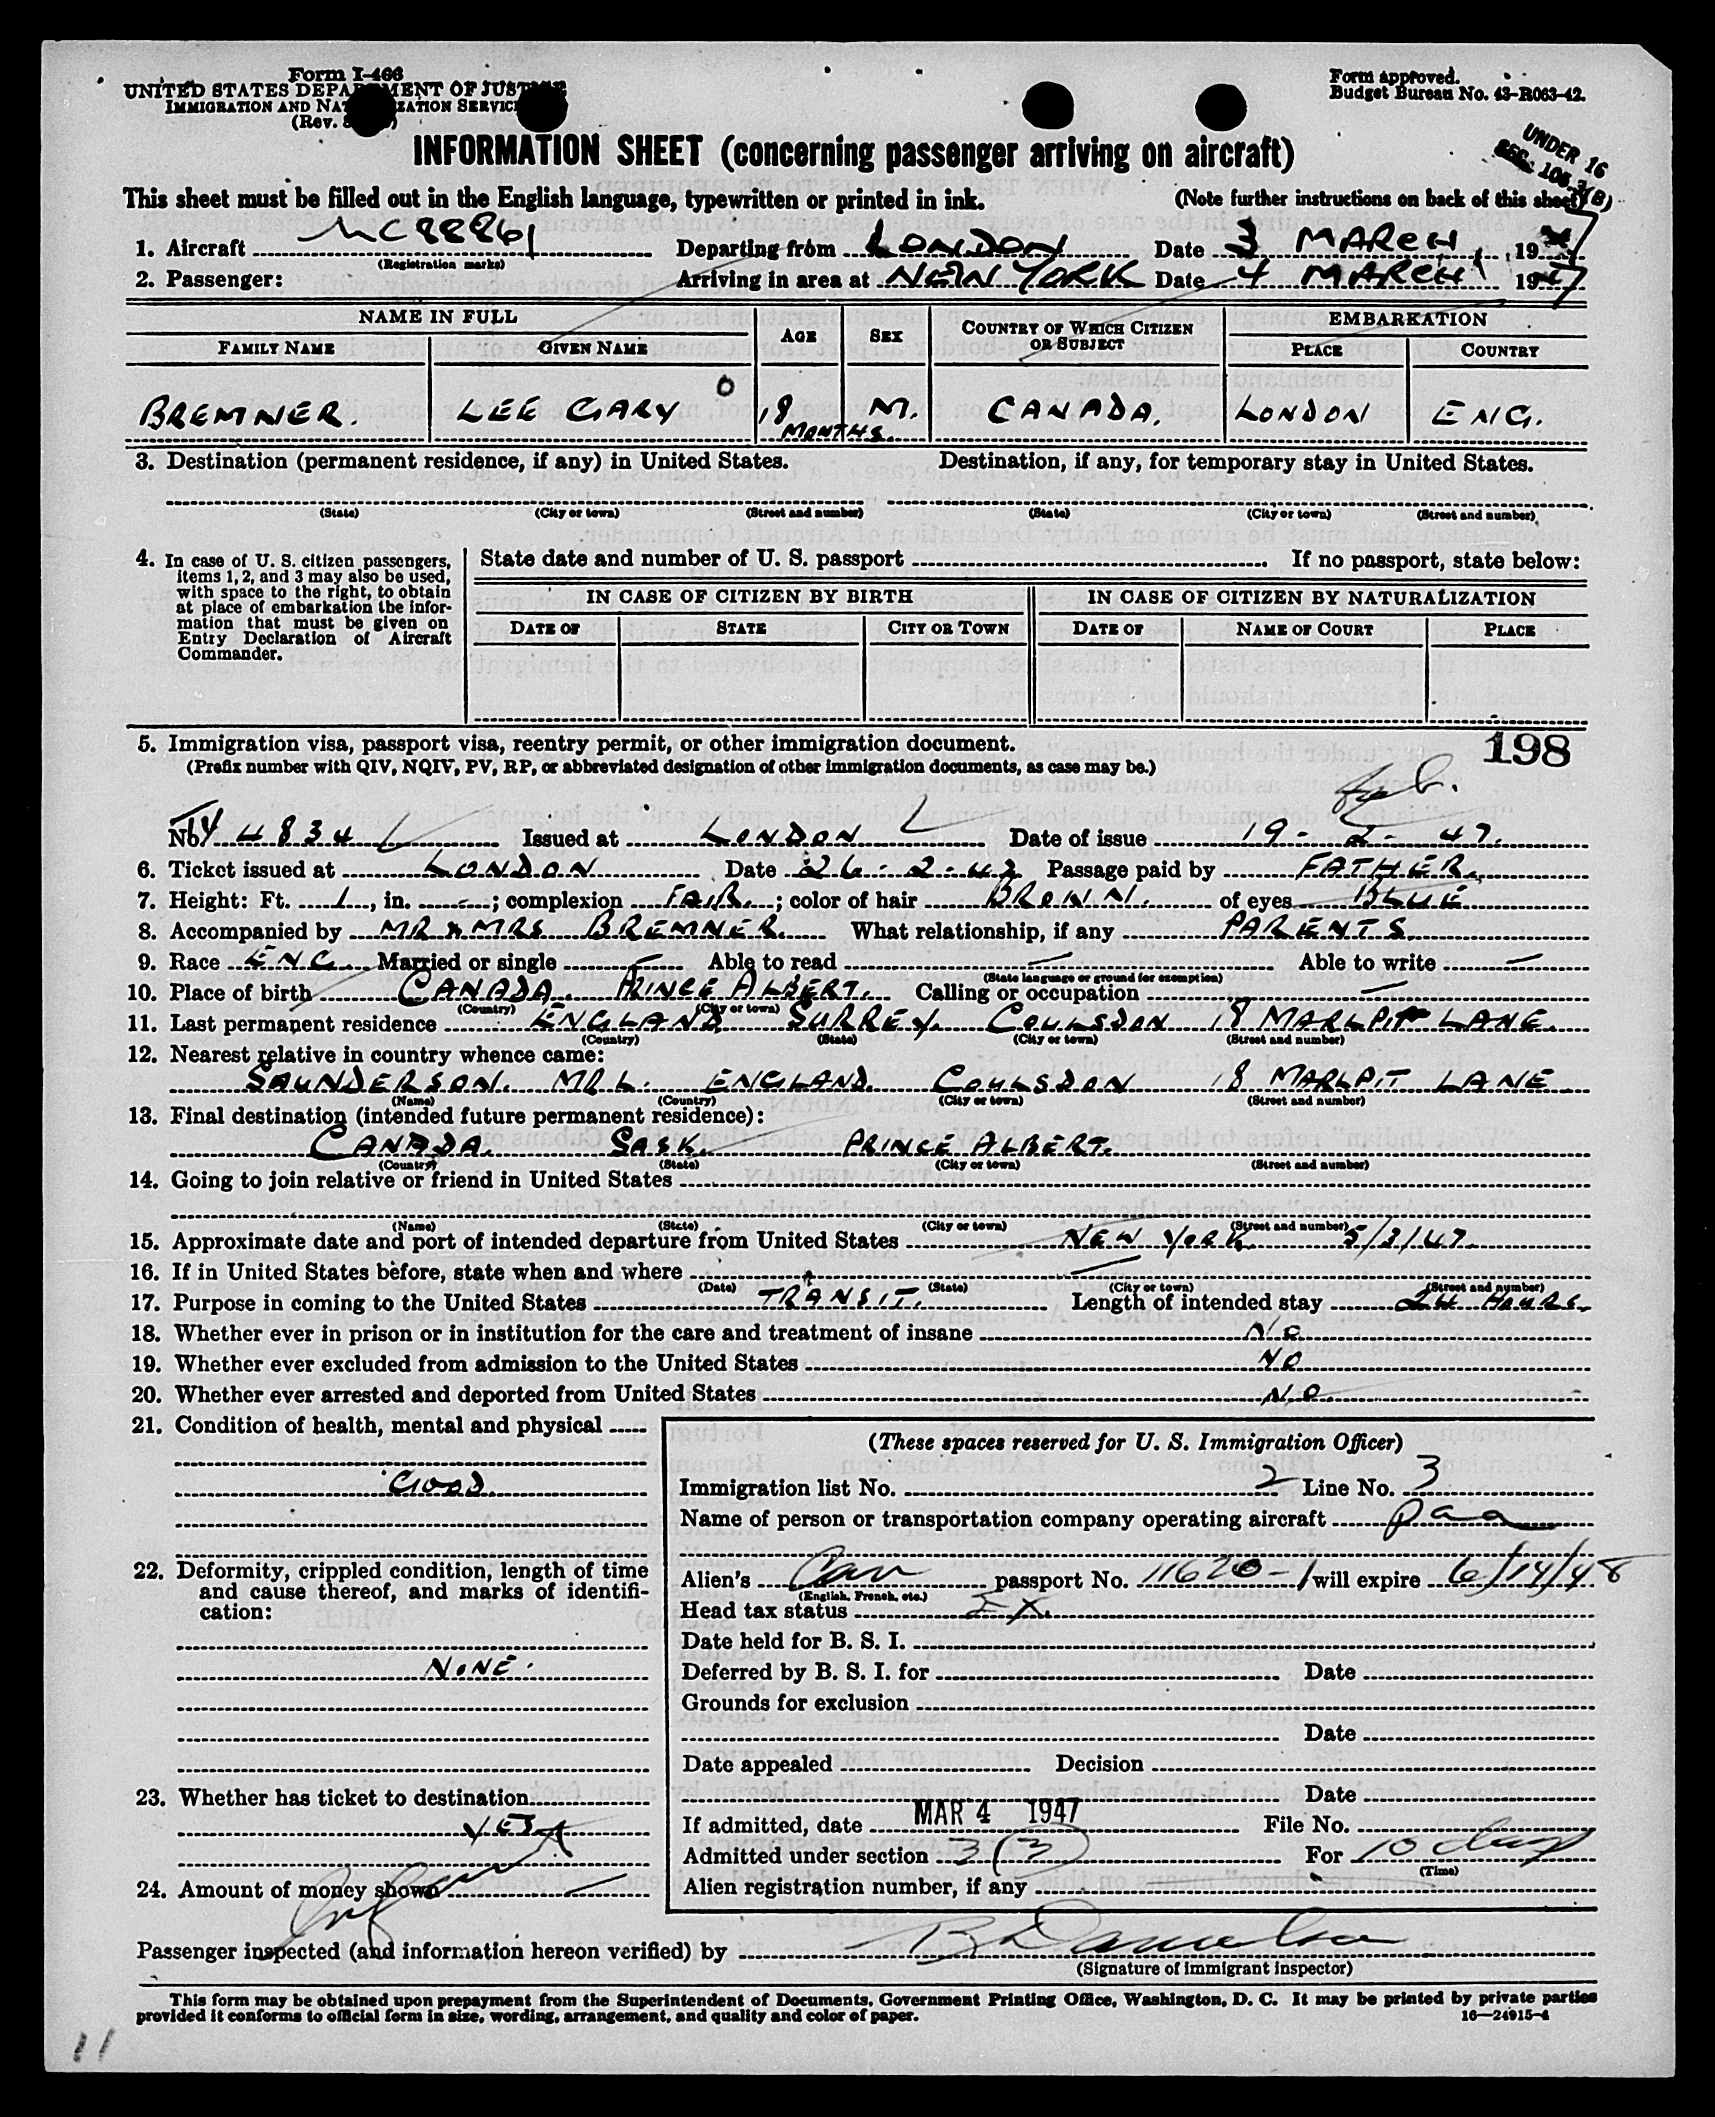 Form I-466
UNITED STATES DEPARTMENT OF JUSTICE
IMMIGRATION AND NATURALIZATION SERVICE
(Rev.
Form approved.
Budget Bureau No. 43-R063-42.
UNDER 16
SEC. 105.3(B)
INFORMATION SHEET (concerning passenger arriving on aircraft)
This sheet must be filled out in the English language, typewritten or printed in ink. (Note further instructions on back of this sheet)
1. Aircraft NC88861 Departing from LONDON Date 3 MARCH, 1947
(Registration marks)
2. Passenger: Arriving in area at NEW YORK Date 4 MARCH 1947
NAME IN FULL AGE SEX COUNTRY OF WHICH CITIZEN OR SUBJECT EMBARKATION
FAMILY NAME GIVEN NAME PLACE COUNTRY
0
BREMNER. LEE GARY 18 MONTHS. M. CANADA. LONDON ENG.
3. Destination (permanent residence, if any) in United States. Destination, if any, for temporary stay in United States.
(State) (City or town) (Street and number) (State) (City or town) (Street and number)
4. In case of U. S. citizen passengers, items 1, 2, and 3 may also be used, with space to the right, to obtain at place of embarkation the information that must be given on Entry Declaration of Aircraft Commander.
State date and number of U. S. passport If no passport, state below:
IN CASE OF CITIZEN BY BIRTH IN CASE OF CITIZEN BY NATURALIZATION
DATE OF STATE CITY OR TOWN DATE OF NAME OF COURT PLACE
5. Immigration visa, passport visa, reentry permit, or other immigration document. 198
(Prefix number with QIV, NQIV, PV, RP, or abbreviated designation of other immigration documents, as case may be.)
No. 4834 Issued at LONDON Date of issue 19-2-47.
6. Ticket issued at LONDON Date 26-2-47 Passage paid by FATHER.
7. Height: Ft. 1, in. -; complexion FAIR.; color of hair BROWN. of eyes BLUE
8. Accompanied by MR & MRS BREMNER. What relationship, if any PARENTS
9. Race ENG. Married or single — Able to read — Able to write —
(State language or ground for exemption)
10. Place of birth CANADA. PRINCE ALBERT. Calling or occupation —
(Country) (City or town)
11. Last permanent residence ENGLAND SURREY. COULSDON 18 MARLPIT LANE.
(Country) (State) (City or town) (Street and number)
12. Nearest relative in country whence came:
SAUNDERSON. MR L. ENGLAND. COULSDON 18 MARLPIT LANE
(Name) (Country) (City or town) (Street and number)
13. Final destination (intended future permanent residence):
CANADA. SASK. PRINCE ALBERT.
(Country) (State) (City or town) (Street and number)
14. Going to join relative or friend in United States
(Name) (State) (City or town) (Street and number)
15. Approximate date and port of intended departure from United States NEW YORK 5/3/47.
16. If in United States before, state when and where —
(Date) (State) (City or town) (Street and number)
17. Purpose in coming to the United States TRANSIT. Length of intended stay 24 HOURS.
18. Whether ever in prison or in institution for the care and treatment of insane NO
19. Whether ever excluded from admission to the United States NO
20. Whether ever arrested and deported from United States NO.
21. Condition of health, mental and physical
GOOD.
22. Deformity, crippled condition, length of time and cause thereof, and marks of identification:
NONE.
23. Whether has ticket to destination
YES
24. Amount of money shown —
(These spaces reserved for U. S. Immigration Officer)
Immigration list No. 2 Line No. 3
Name of person or transportation company operating aircraft paa
Alien's Can passport No. 11620-1 will expire 6/14/48
(English, French, etc.)
Head tax status EX.
Date held for B. S. I.
Deferred by B. S. I. for Date
Grounds for exclusion
Date
Date appealed Decision
Date
If admitted, date MAR 4 1947 File No.
Admitted under section 3(3) For 10 days
(Time)
Alien registration number, if any
Passenger inspected (and information hereon verified) by B Danielson
(Signature of immigrant inspector)
This form may be obtained upon prepayment from the Superintendent of Documents, Government Printing Office, Washington, D. C. It may be printed by private parties
provided it conforms to official form in size, wording, arrangement, and quality and color of paper. 16—24915-4
11